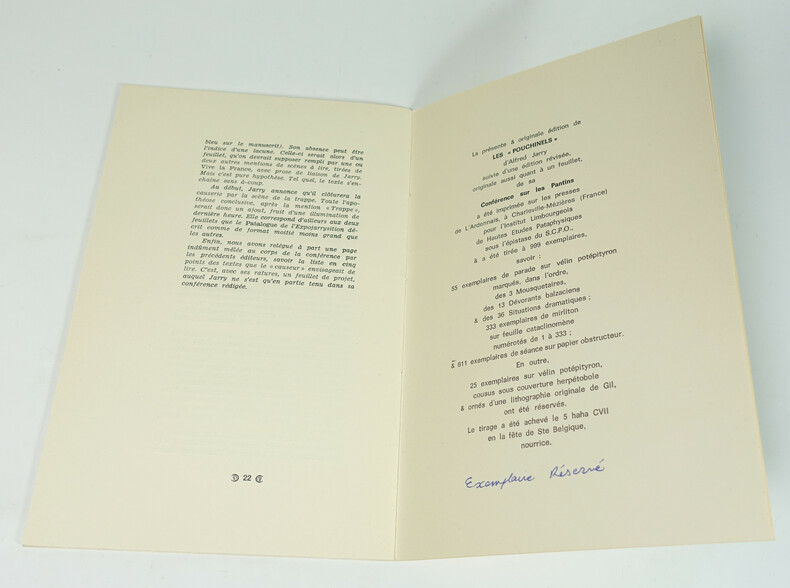 bleu sur le manuscrit). Son absence peut être
l'indice d'une lacune. Celle-ci serait alors d'un
feuillet, qu'on devrait supposer rempli par une ou
deux autres mentions de scènes à lire, tirées de
Vive la France, avec prose de liaison de Jarry.
Mais c'est pure hypothèse. Tel quel, le texte s'en-
chaîne sans à-coup.
Au début, Jarry annonce qu'il clôturera la
causerie par la scène de la trappe. Toute l'apo-
théose conclusive, après la mention « Trappe »,
serait donc un ajout, fruit d'une illumination de
dernière heure. Elle correspond d'ailleurs aux deux
feuillets que le Patalogue de l'Expojarrysition dé-
crit comme de format moitié moins grand que
les autres.
Enfin, nous avons relégué à part une page
indûment mêlée au corps de la conférence par
les précédents éditeurs, savoir la liste en cinq
points des textes que le « causeur » envisageait de
lire. C'est, avec ses ratures, un feuillet de projet,
auquel Jarry ne s'est qu'en partie tenu dans sa
conférence rédigée.
22
La présente & originale édition de
LES « POUCHINELS »
d'Alfred Jarry
suivie d'une édition révisée,
originale aussi quant à un feuillet,
de sa
Conférence sur les Pantins
a été imprimée sur les presses
de L'Ardennais, à Charleville-Mézières (France)
pour l'Institut Limbourgeois
de Hautes Etudes Pataphysiques
sous l'épistase du S.C.P.O.,
& a été tirée à 999 exemplaires,
savoir :
55 exemplaires de parade sur vélin potépityron
marqués, dans l'ordre,
des 3 Mousquetaires,
des 13 Dévorants balzaciens
& des 36 Situations dramatiques ;
333 exemplaires de mirliton
sur feuille cataclinomène
numérotés de 1 à 333 ;
& 611 exemplaires de séance sur papier obstructeur.
En outre,
25 exemplaires sur vélin potépityron,
cousus sous couverture herpétobole
& ornés d'une lithographie originale de Gil,
ont été réservés.
Le tirage a été achevé le 5 haha CVII
en la fête de Ste Belgique,
nourrice.
Exemplaire Réservé